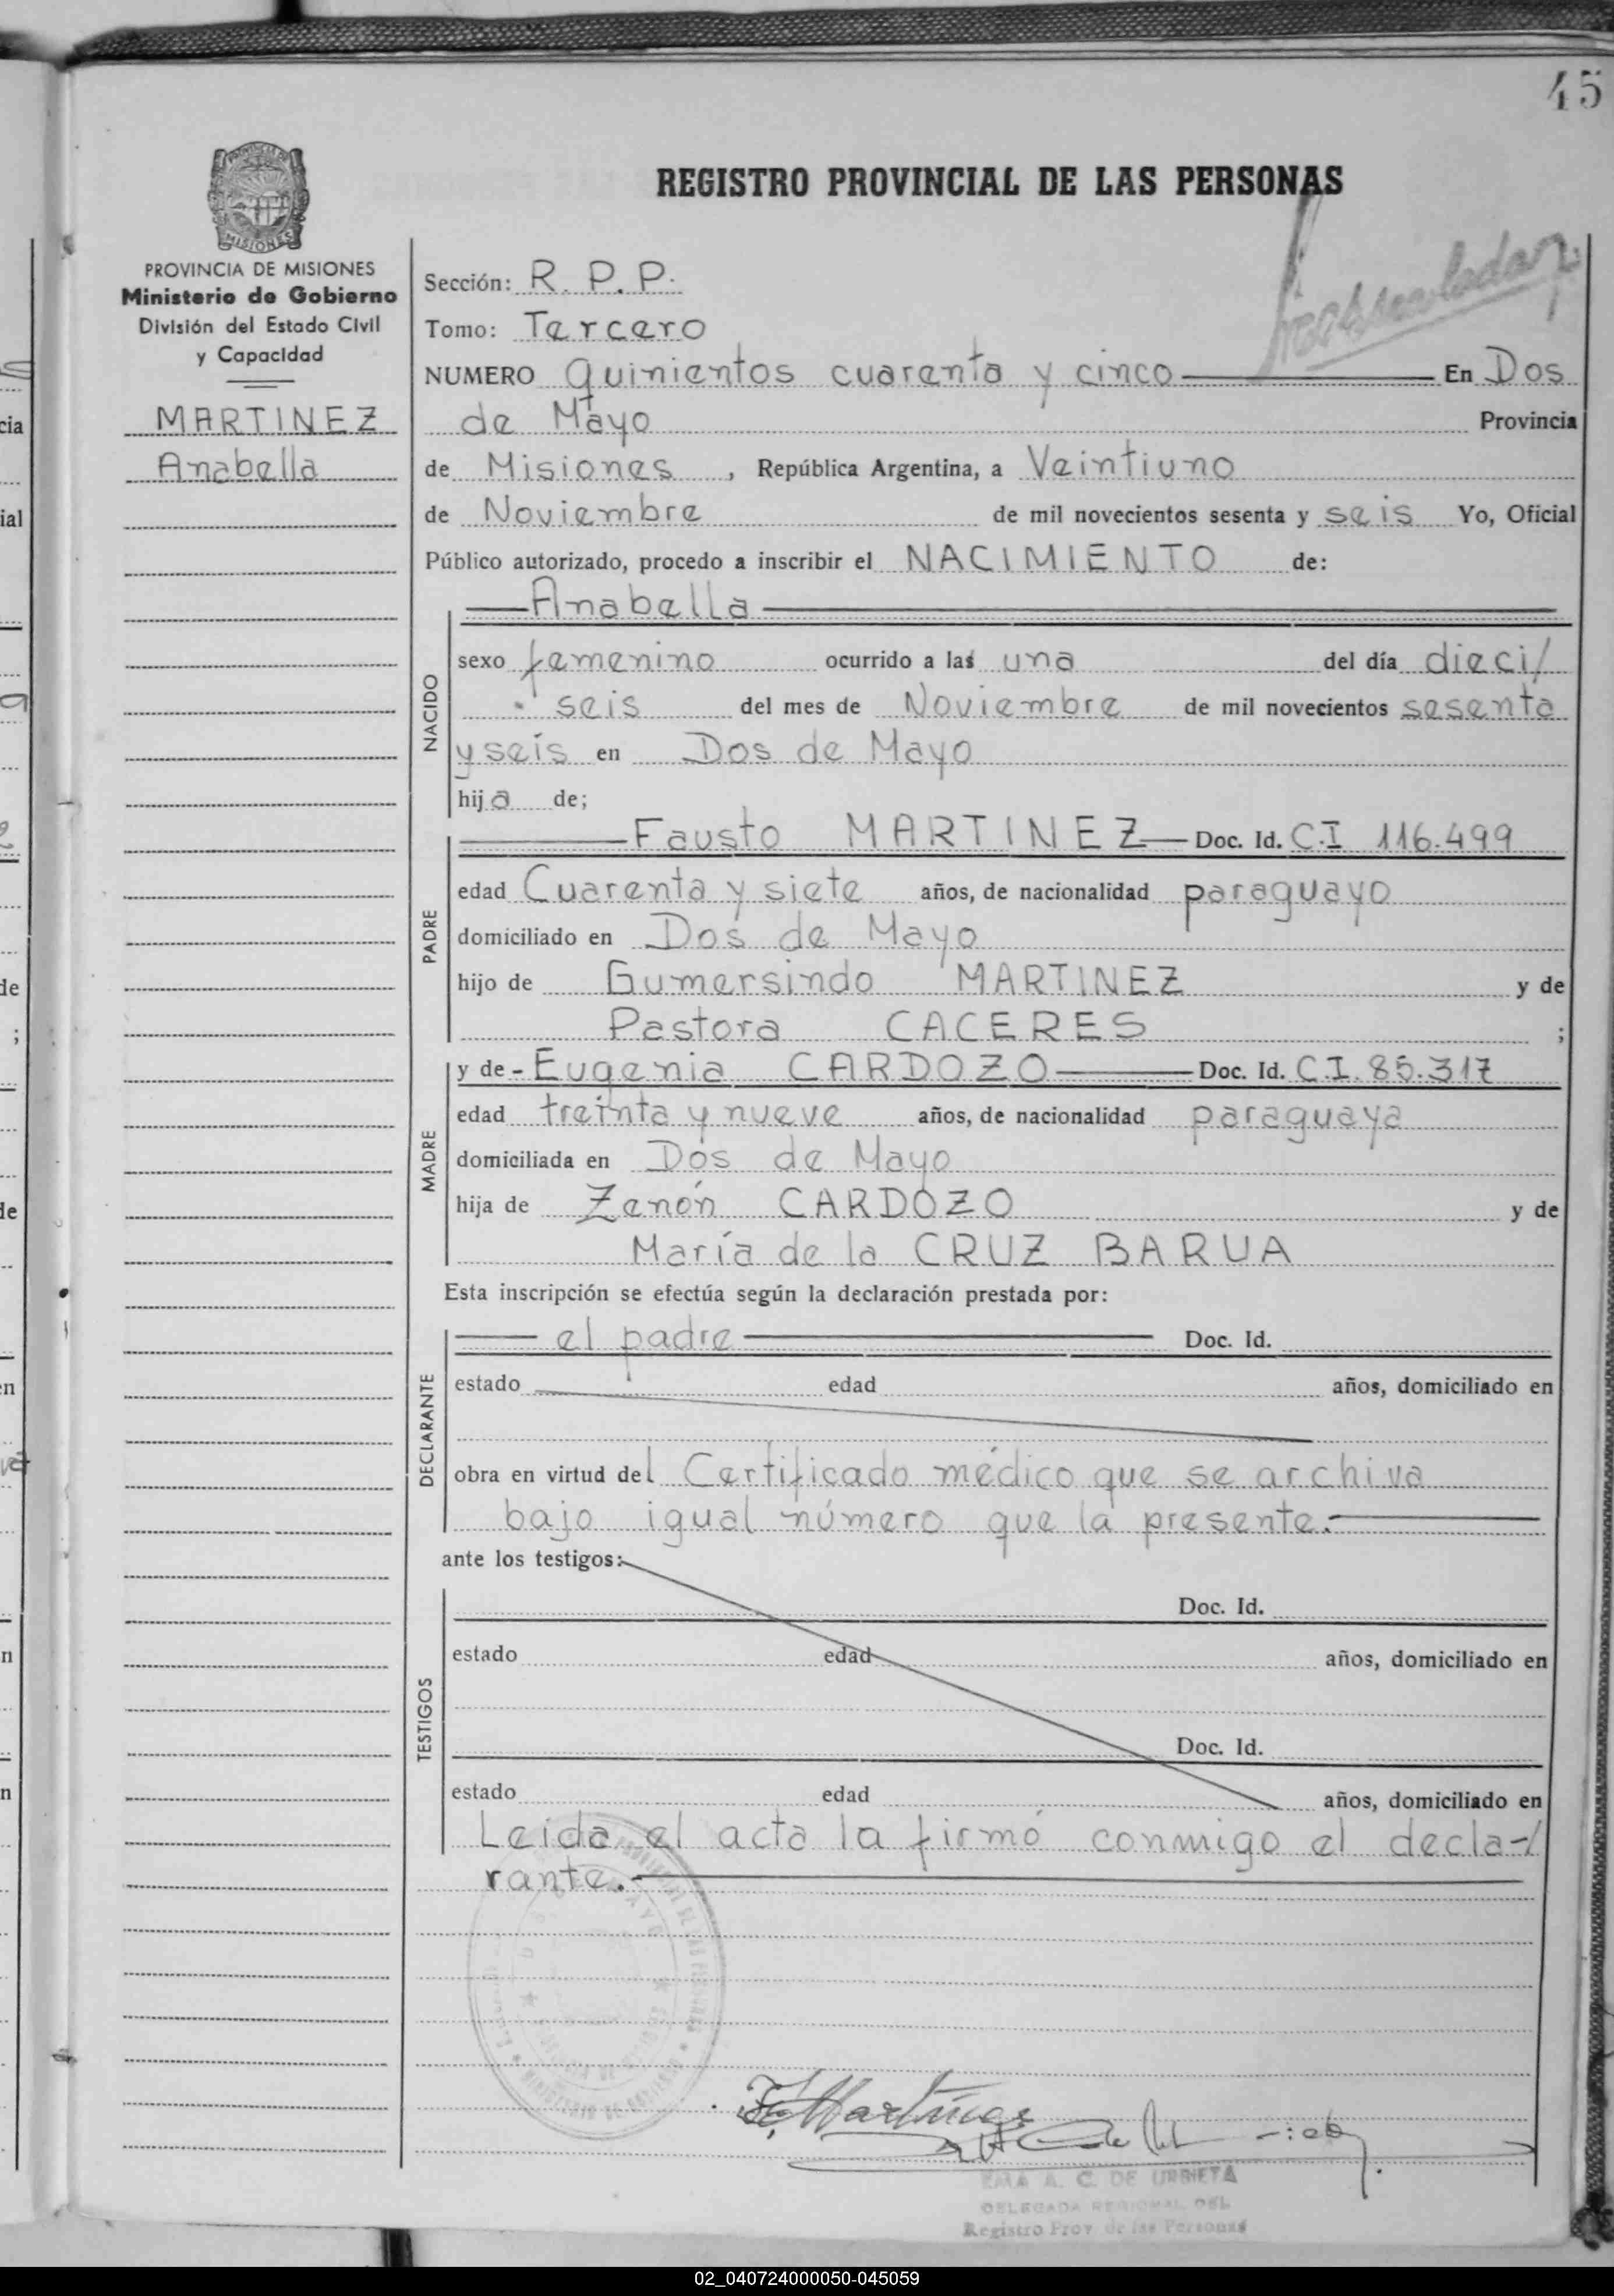 45
REGISTRO PROVINCIAL DE LAS PERSONAS
MISIONES
PROVINCIA DE MISIONES
Ministerio de Gobierno
División del Estado Civil
y Capacidad
MARTINEZ
Anabella
Sección: R. P. P.
Tomo: Tercero
NUMERO Quinientos cuarenta y cinco En Dos
de Mayo Provincia
de Misiones, República Argentina, a Veintiuno
de Noviembre de mil novecientos sesenta y seis Yo, Oficial
Público autorizado, procedo a inscribir el NACIMIENTO de:
NACIDO
Anabella
sexo femenino ocurrido a las una del día dieci/
seis del mes de Noviembre de mil novecientos sesenta
y seis en Dos de Mayo
hija de;
PADRE
Fausto MARTINEZ Doc. Id. C.I 116.499
edad Cuarenta y siete años, de nacionalidad paraguayo
domiciliado en Dos de Mayo
hijo de Gumersindo MARTINEZ y de
Pastora CACERES ;
MADRE
y de - Eugenia CARDOZO Doc. Id. C.I. 85.317
edad treinta y nueve años, de nacionalidad paraguaya
domiciliada en Dos de Mayo
hija de Zenón CARDOZO y de
María de la CRUZ BARUA
Esta inscripción se efectúa según la declaración prestada por:
DECLARANTE
el padre Doc. Id.
estado edad años, domiciliado en
obra en virtud del Certificado médico que se archiva
bajo igual número que la presente.
ante los testigos:
TESTIGOS
Doc. Id.
estado edad años, domiciliado en
Doc. Id.
estado edad años, domiciliado en
Leida el acta la firmó conmigo el decla-/
rante.
F. Martínez
EMA A. C. DE URRIETA
DELEGADA REGIONAL DEL
Registro Prov. de las Personas
02_040724000050-045059